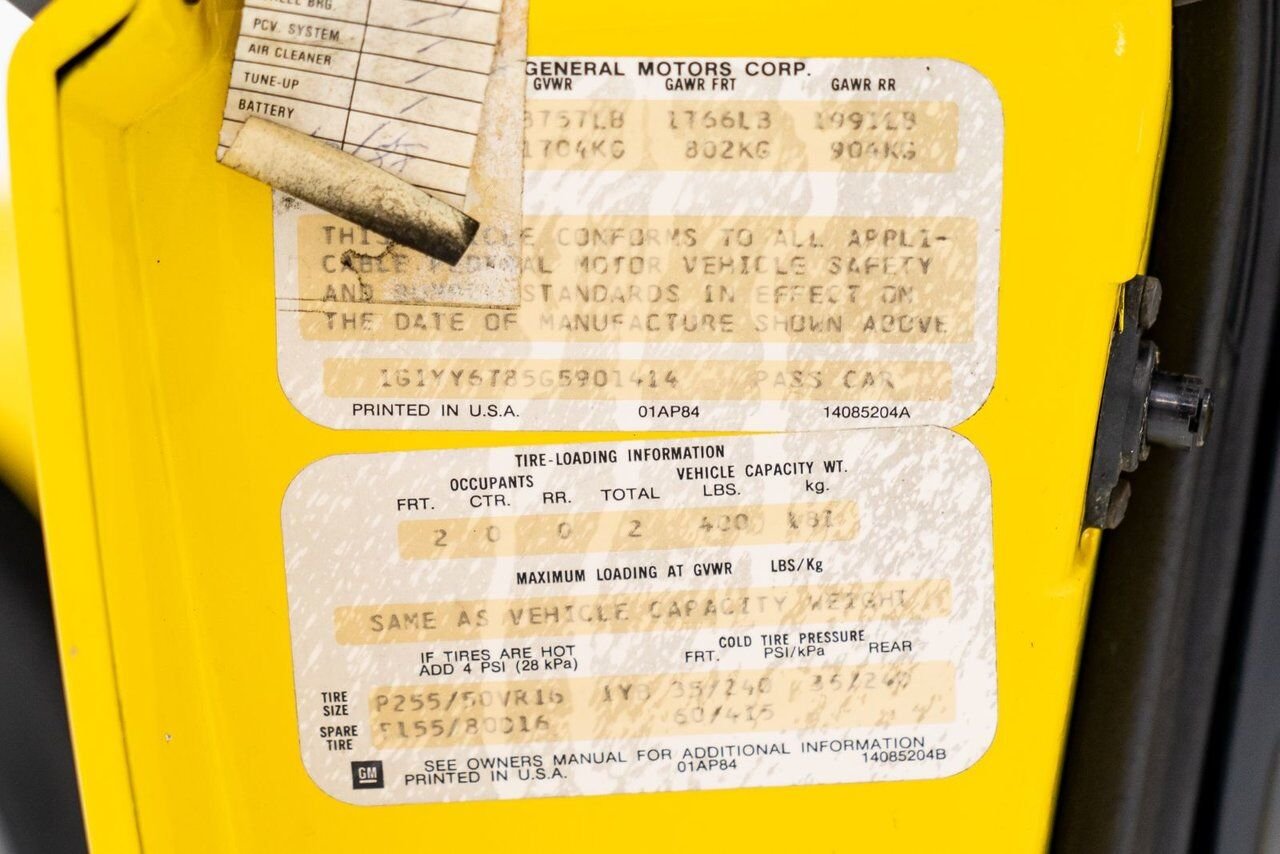 PCV. SYSTEM
AIR CLEANER
TUNE-UP
BATTERY
GENERAL MOTORS CORP.
GVWR GAWR FRT GAWR RR
3757LB 1766LB 1991LB
1704KG 802KG 904KG
THIS CONFORMS TO ALL APPLI-
CABLE FEDERAL MOTOR VEHICLE SAFETY
AND STANDARDS IN EFFECT ON
THE DATE OF MANUFACTURE SHOWN ABOVE
1G1YY6785G5901414 PASS CAR
PRINTED IN U.S.A. 01AP84 14085204A
TIRE-LOADING INFORMATION
OCCUPANTS VEHICLE CAPACITY WT.
FRT. CTR. RR. TOTAL LBS. kg.
2 0 0 2 400 181
MAXIMUM LOADING AT GVWR LBS/Kg
SAME AS VEHICLE CAPACITY WEIGHT
IF TIRES ARE HOT COLD TIRE PRESSURE
ADD 4 PSI (28 kPa) FRT. PSI/kPa REAR
TIRE SIZE P255/50VR16 1YB 35/240 35/240
SPARE TIRE T155/80D16 60/415
SEE OWNERS MANUAL FOR ADDITIONAL INFORMATION
GM PRINTED IN U.S.A. 01AP84 14085204B